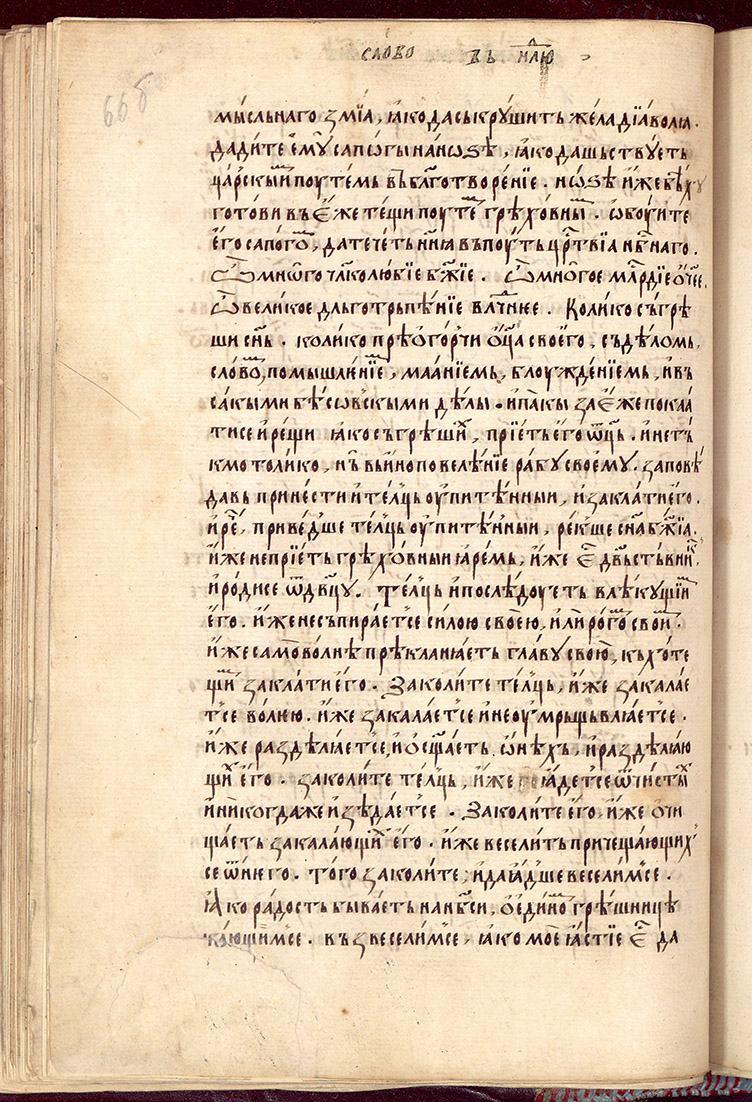 668
слово въ нлю
мы́сльнаго ѕмі́а, ꙗ́ко да съкрꙋ́шить жела дїа́волꙗ.
дади́те е҆мꙋ̀ сапо́гы на но́ѕѣ, ꙗ́ко да шьствꙋ́еть
ца́рскыи поуте́мь въ бл҃готворе́нїе. но́ѕѣ и҆́же бѣ́хꙋ
гото́ви въ є҆́же те́щи поуте гре́хо́вны. ѡ҆боу́ите
є҆го̀ сапогѡ, да тече́ть нн҃ꙗ въ поу́ть црⷭ҇твїа нбⷭ҇наго.
Ѽ мно́го чл҃колю́бїе бж҃їе. Ѽ мно́гое млⷭ҇рдїе ѻ҆́ч҃ее.
Ѽ вели́кое дльготрьпѣ́нїе влⷣчнее. Коли́ко съгрѣ
ши сн҃ь. коли́ко прѣѻ҆го́рчи ѻ҆ц҃а своего̀, съ дѣ́ломь,
сло́во, помышле́нїе, маа́нїемь, блоужде́нїемь, и҆ въ
са́кыми бѣсо́вскыми дѣ́лы. и҆ па́кы за є҆́же покаа
тисе и҆ рещи ꙗ҆ко съгрѣши́х, прїе́ть е҆го̀ ѿц҃ь. и҆ не тъ
кмо толи́ко, нъ́ вьино повелѣ́нїе ра́бꙋ своемꙋ. запове́
давь принести и҆ те́лць оу҆пите́нныи, и҆ закла́ти е҆го̀.
и҆ ре́ч, приве́дше те́лць оу҆пите́нныи, ре́кше сн҃а бж҃їа.
и҆́же не прїе́ть грѣхо́вныи ꙗ҆ре́мь, и҆́же є҆ⷭ҇ дв҃ьствьникⷩ
и҆ роди́се ѿ дв҃цꙋ. Те́лць и҆ послѣ́доуеть влѣкꙋ́щїи
е҆го̀. и҆́же не съпира́етсе си́лою своею, и҆ли рогѡ свои.
и҆́же самово́лнѣ прѣкланꙗ́еть гла́вꙋ свою, къ хо́те
щи закла́ти е҆го̀. Заколи́те те́лць, и҆́же закала́е
тсе во́лею. и҆́же закала́етсе и҆ не оу҆мрьщьвлꙗ́етсе.
и҆́же раздѣлꙗ́етсе, и҆ ѻ҆сщ҃а́еть ѻ҆нѣ́хь, и҆ раздѣлꙗ́ю
щих е҆го̀. заколи́те те́лць, и҆́же ꙗ҆де́тсе ѿ чи́стых
и҆ ни́когда же и҆зѣда́етсе. Заколи́те е҆го̀, и҆́же ѻ҆чи
ща́еть закала́ющих е҆го̀. и҆́же весели́ть прича́щающих
се ѿ не́го. того̀ заколи́те, и҆ да ꙗ҆́дше весели́мсе.
Ꙗ҆́ко ра́дость быва́еть на нб҃си, ѻ҆ е҆ди́но грѣ́шницѣ
ка́ющимсе. въз весели́мсе, ꙗ҆́ко мое ꙗ҆́стїе є҆ⷭ҇ да